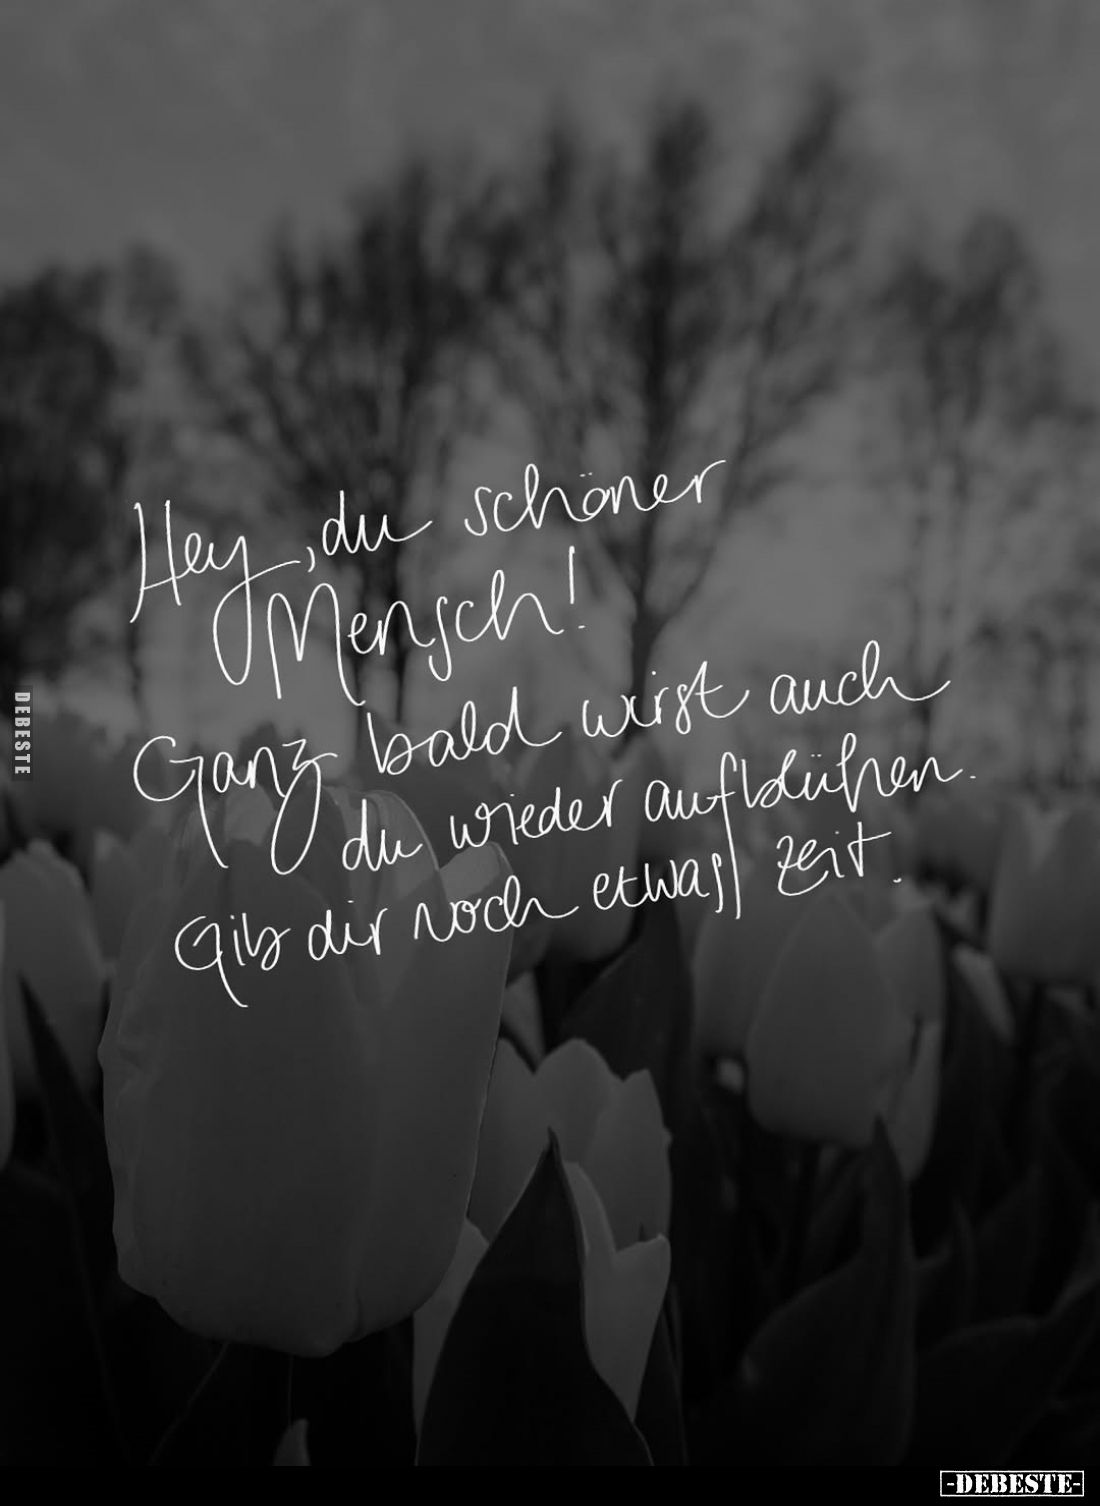 Hey, du schöner
Mensch!
Ganz bald wirst auch
du wieder aufblühen.
Gib dir noch etwas zeit.
DEBESTE
-DEBESTE-